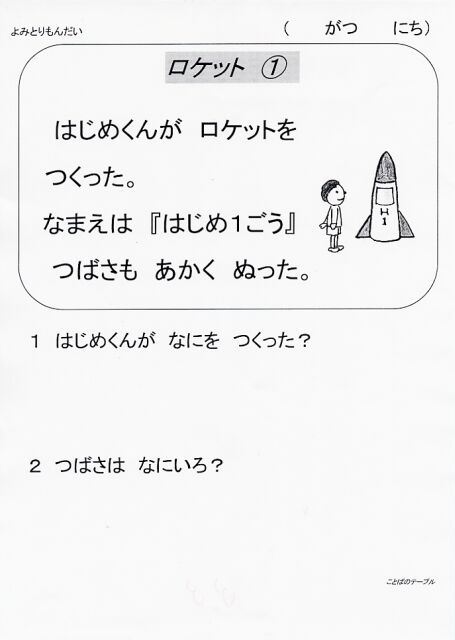 よみとりもんだい （　　がつ　　にち）
ロケット　①
はじめくんが　ロケットを
つくった。
なまえは　『はじめ１ごう』
つばさも　あかく　ぬった。
H
1
１　はじめくんが　なにを　つくった？
２　つばさは　なにいろ？
ことばのテーブル